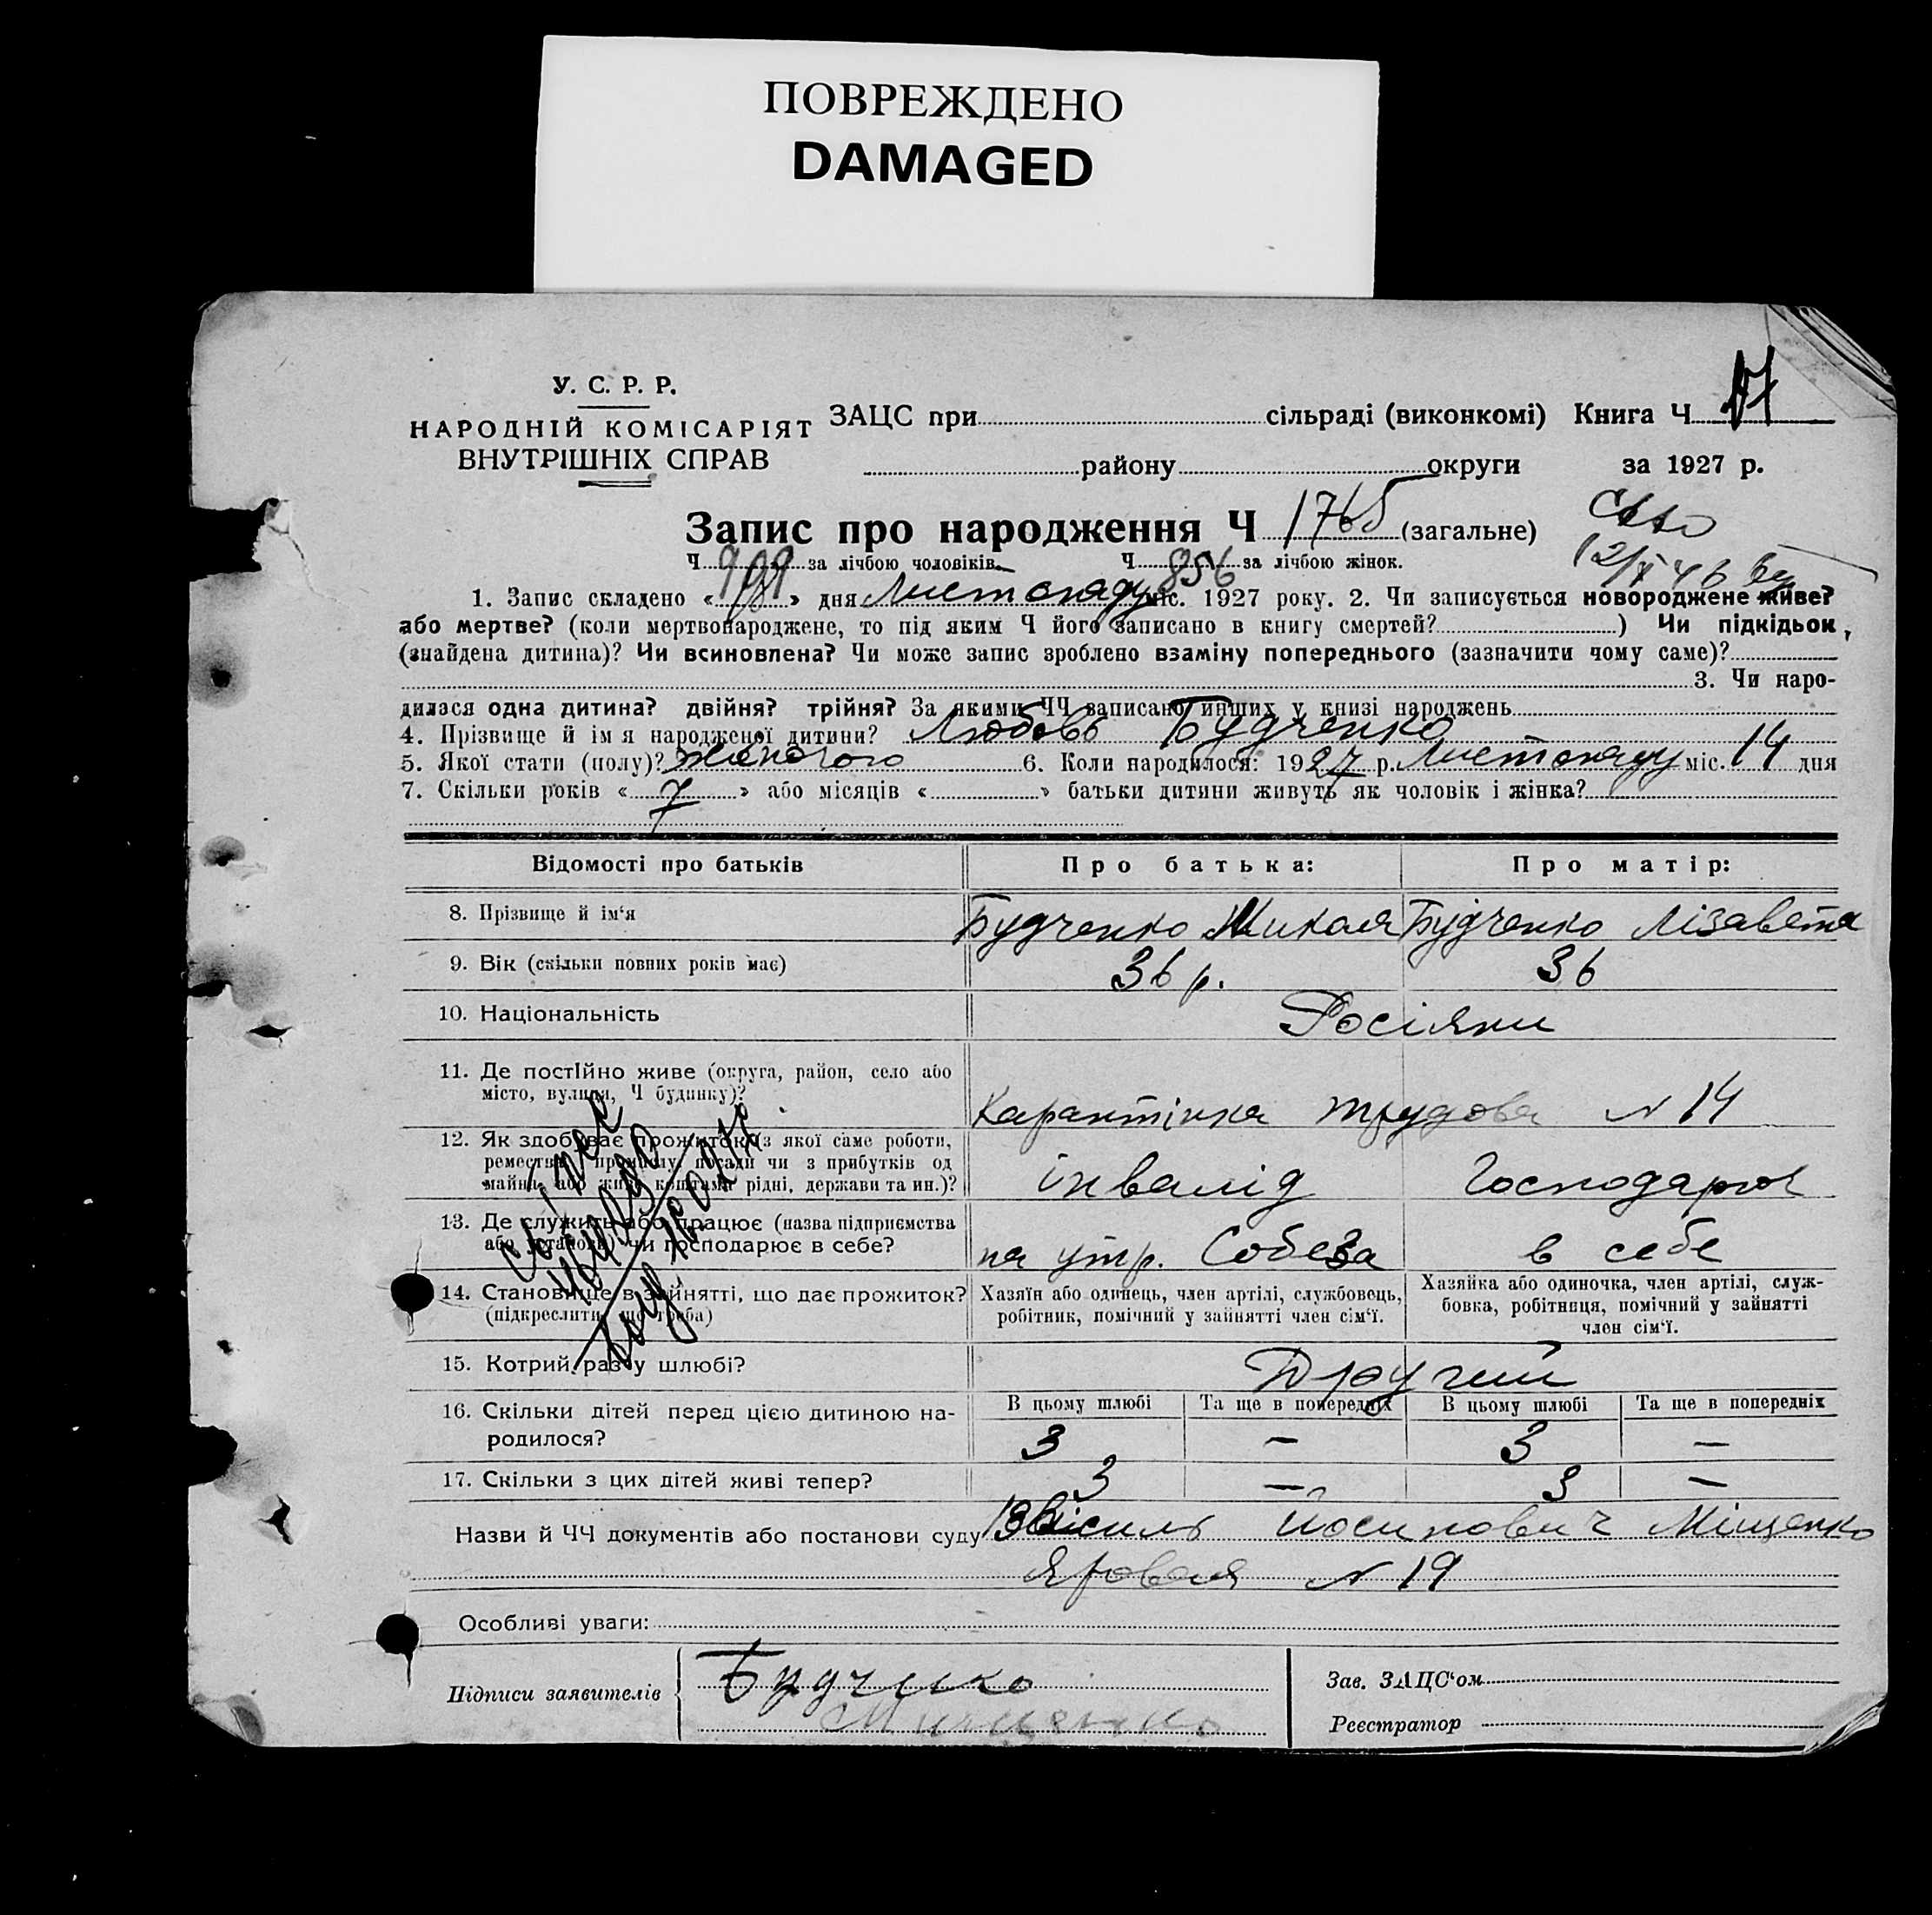 ПОВРЕЖДЕНО
DAMAGED
У. С. Р. Р.
НАРОДНІЙ КОМІСАРІЯТ
ВНУТРІШНІХ СПРАВ
ЗАЦС при сільраді (виконкомі) Книга Ч 17
району округи за 1927 р.
Запис про народження Ч 1765 (загальне)
Ч 909 за лічбою чоловіків. Ч 856 за лічбою жінок.
1. Запис складено « 18 » дня Листопаду міс. 1927 року. 2. Чи записується новороджене живе?
або мертве? (коли мертвонароджене, то під яким Ч його записано в книгу смертей? ) Чи підкідьок,
(знайдена дитина)? Чи всиновлена? Чи може запис зроблено взаміну попереднього (зазначити чому саме)?
3. Чи наро-
дилася одна дитина? двійня? трійня? За якими ЧЧ записано инших у книзі народжень
4. Прізвище й ім я народженої дитини? Любовь Будченко
5. Якої стати (полу)? жіночого 6. Коли народилося: 1927 р. Листопаду міс. 14 дня
7. Скільки років « 7 » або місяців « » батьки дитини живуть як чоловік і жінка?
Відомості про батьків Про батька: Про матір:
8. Прізвище й ім‘я Будченко Микола Будченко Лізавета
9. Вік (скільки повних років має) 36 р. 36
10. Національність Росіяни
11. Де постійно живе (округа, район, село або
місто, вулиця, Ч будинку)? Карантінка трудова N 14
12. Як здобуває прожиток (з якої саме роботи,
ремества, промислу, посади чи з прибутків од
майна, або живе коштами рідні, держави та ин.)? інвалід Господарює
13. Де служить або працює (назва підприємства
або установи) чи господарює в себе? на утр. Собеза в себе
14. Становище в зайнятті, що дає прожиток?
(підкреслити, що треба)
Хазяїн або одинець, член артілі, службовець,
робітник, помічний у зайнятті член сім‘ї.
Хазяйка або одиночка, член артілі, служ-
бовка, робітниця, помічний у зайнятті
член сім‘ї.
15. Котрий раз у шлюбі? Другий
16. Скільки дітей перед цією дитиною на-
родилося?
В цьому шлюбі Та ще в попередніх В цьому шлюбі Та ще в попередніх
3 — 3 —
17. Скільки з цих дітей живі тепер? 3 — 3 —
Назви й ЧЧ документів або постанови суду Йосипович Міщенко
Яровая N 19
Особливі уваги:
Підписи заявителів Будченко
Мищенко
Зав. ЗАЦС‘ом
Реєстратор